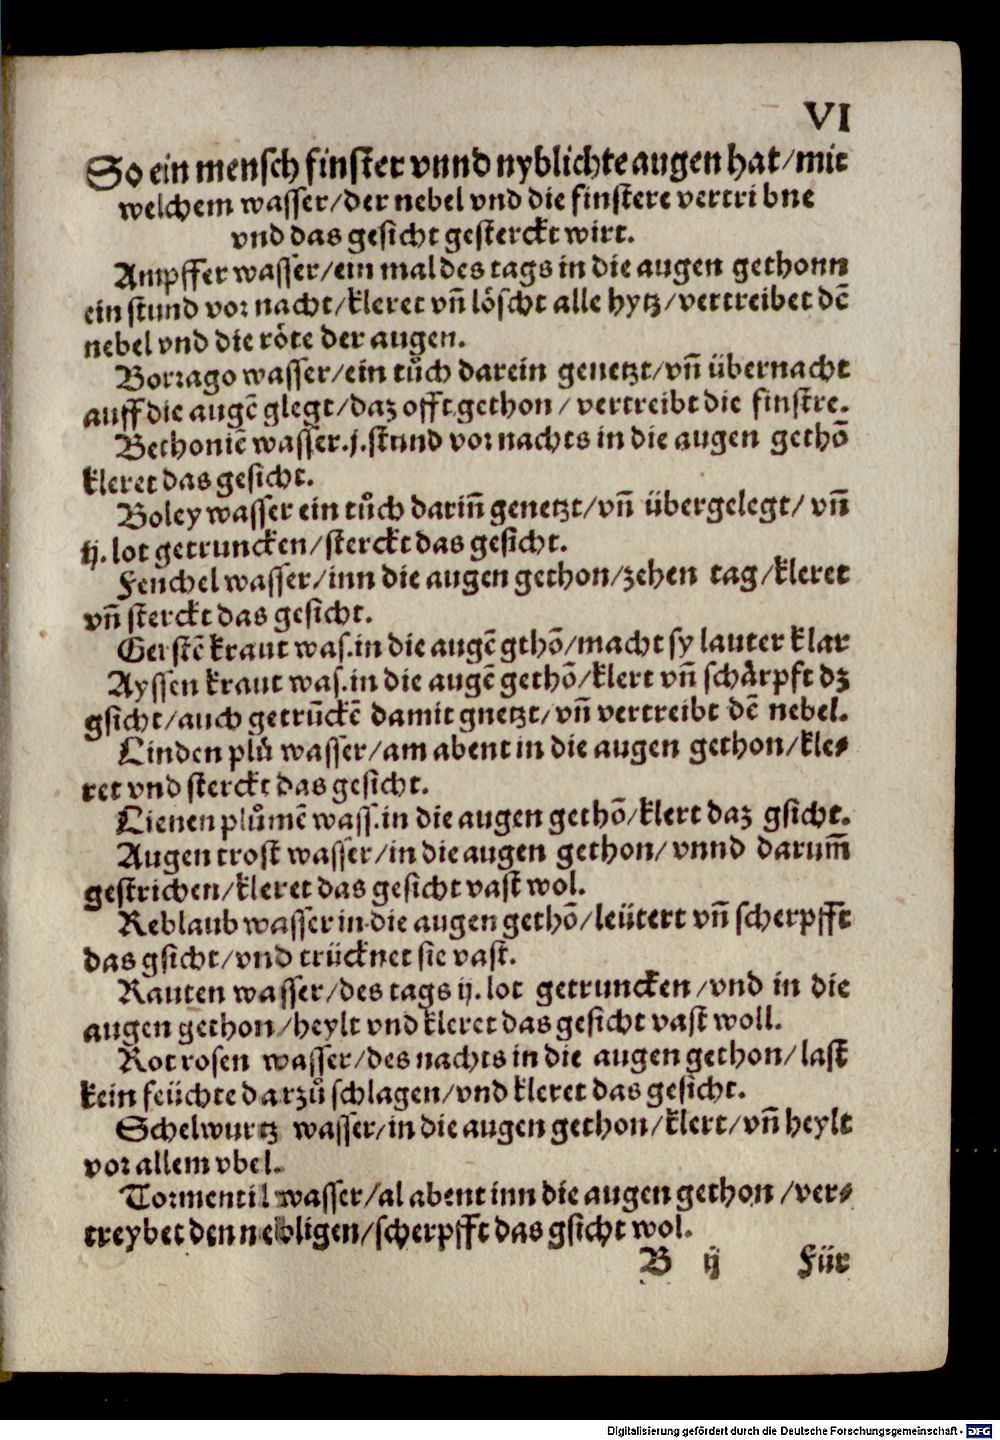 VI
So ein mensch finster vnnd nyblichte augen hat/mit
welchem wasser/der nebel vnd die finstere vertri bne
vnd das gesicht gesterckt wirt.
Ampffer wasser/ein mal des tags in die augen gethonn
ein stund vor nacht/kleret vñ löscht alle hytz/vertreibet dẽ
nebel vnd die röte der augen.
Borrago wasser/ein tůch darein genetzt/vñ übernacht
auff die augẽ glegt/daz offt gethon/vertreibt die finstre.
Bethoniẽ wasser.j.stund vor nachts in die augen gethõ
kleret das gesicht.
Boley wasser ein tůch dariñ genetzt/vñ übergelegt/vñ
ij.lot getruncken/sterckt das gesicht.
Fenchel wasser/inn die augen gethon/zehen tag/kleret
vñ sterckt das gesicht.
Gerstẽ kraut was.in die augẽ gthõ/macht sy lauter klar
Ayssen kraut was.in die augẽ gethõ/klert vñ schärpft dz
gsicht/auch getrũckẽ damit gnetzt/vñ vertreibt dẽ nebel.
Linden plů wasser/am abent in die augen gethon/kle⸗
ret vnd sterckt das gesicht.
Lienen plůmẽ wass.in die augen gethõ/klert daz gsicht.
Augen trost wasser/in die augen gethon/vnnd darum̃
gestrichen/kleret das gesicht vast wol.
Reblaub wasser in die augen gethõ/leütert vñ scherpfft
das gsicht/vnd trücknet sie vast.
Rauten wasser/des tags ij.lot getruncken/vnd in die
augen gethon/heylt vnd kleret das gesicht vast woll.
Rot rosen wasser/des nachts in die augen gethon/last
kein feüchte darzů schlagen/vnd kleret das gesicht.
Schelwurtz wasser/in die augen gethon/klert/vñ heylt
vor allem vbel.
Tormentil wasser/al abent inn die augen gethon/ver⸗
treybet den nebligen/scherpfft das gsicht wol.
B ij Für
Digitalisierung gefördert durch die Deutsche Forschungsgemeinschaft - DFG